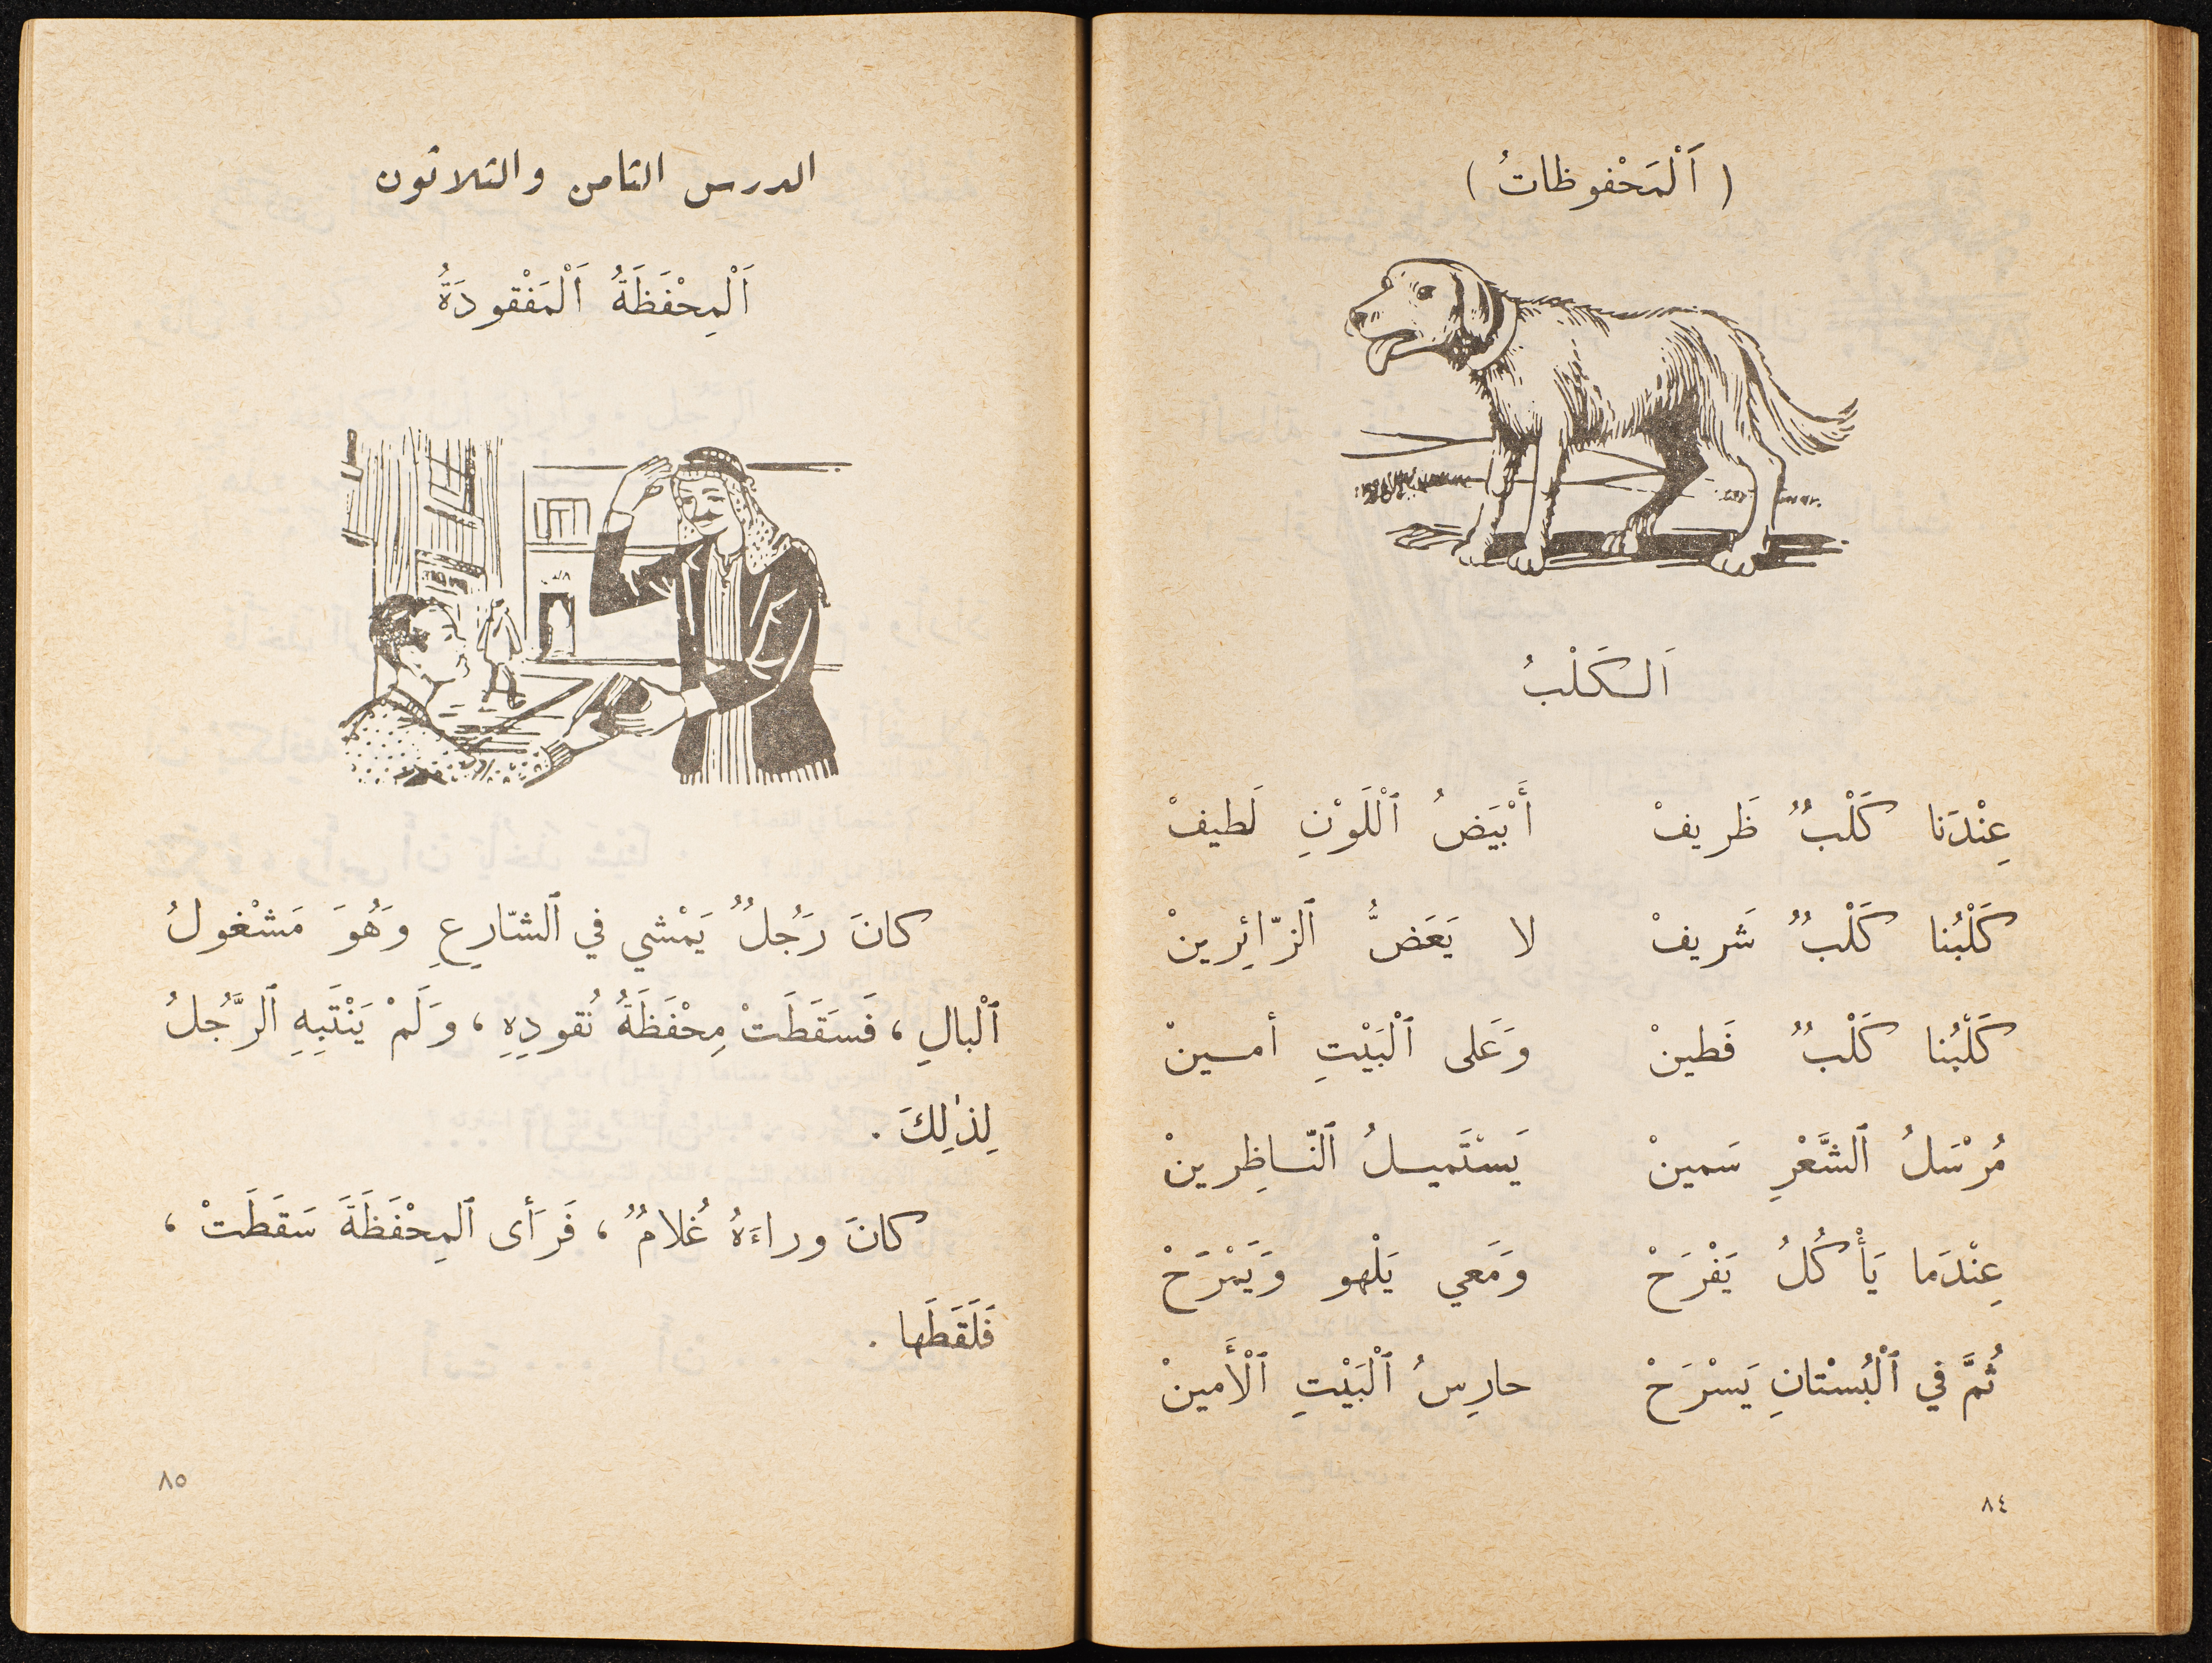 ( اَلْمَحْفوظاتُ )
اَلْكَلْبُ
عِنْدَنا كَلْبٌ ظَريفْ أَبْيَضُ ٱللَّوْنِ لَطيفْ
كَلْبُنا كَلْبٌ شَريفْ لا يَعَضُّ ٱلزّائِرينْ
كَلْبُنا كَلْبٌ فَطينْ وَعَلى ٱلْبَيْتِ أمـينْ
مُرْسَلُ ٱلشَّعْرِ سَمينْ يَسْتَميـلُ ٱلنّـاظِرينْ
عِنْدَما يَأْكُلُ يَفْرَحْ وَمَعي يَلْهو وَيَمْرَحْ
ثُمَّ في ٱلْبُسْتانِ يَسْرَحْ حارِسُ ٱلْبَيْتِ ٱلْأَمينْ
٨٤
الدرس الثامن والثلاثون
اَلْمِحْفَظَةُ اَلْمَفْقودَةُ
كانَ رَجُلٌ يَمْشي في ٱلشّارِعِ وَهُوَ مَشْغولُ
ٱلْبالِ ، فَسَقَطَتْ مِحْفَظَةُ نُقودِهِ ، وَلَمْ يَنْتَبِهِ ٱلرَّجُلُ
لِذٰلِكَ .
كانَ وراءَهُ غُلامٌ ، فَرَأى ٱلمِحْفَظَةَ سَقَطَتْ ،
فَلَقَطَها .
٨٥